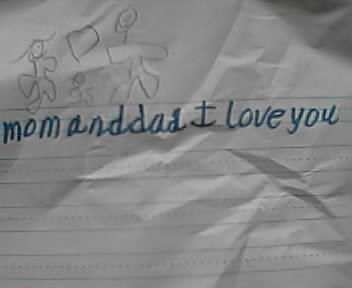 mom and dad I love you